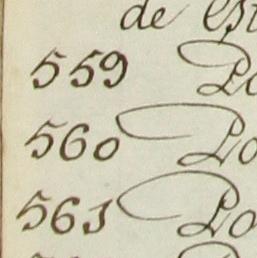 de Est
559 Po
560 Po
561 Po